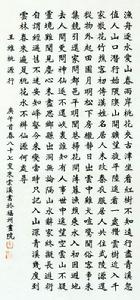 漁舟逐水愛山春兩岸桃花夾古津坐看紅樹不知遠行盡青溪忽
值人山口潛行始隈隩山開曠望旋平陸遙看一處攢雲樹近入千
家散花竹樵客初傳漢姓名居人未改秦衣服居人共住武陵源還
從物外起田園月明松下房櫳靜日出雲中雞犬喧驚聞俗客爭來
集競引還家問都邑平明閭巷掃花開薄暮漁樵乘水入初因避地
去人間更問神仙遂不還峽裏誰知有人事世中遙望空雲山不疑
靈境難聞見塵心未盡思鄉縣出洞無論隔山水辭家終擬長游衍
自謂經過舊不迷安知峰壑今來變當時只記入山深青溪幾度到
雲林春來遍是桃花水不辨仙源何處尋
王維桃源行
庚午首春八十七叟朱雲溪書福州畫院